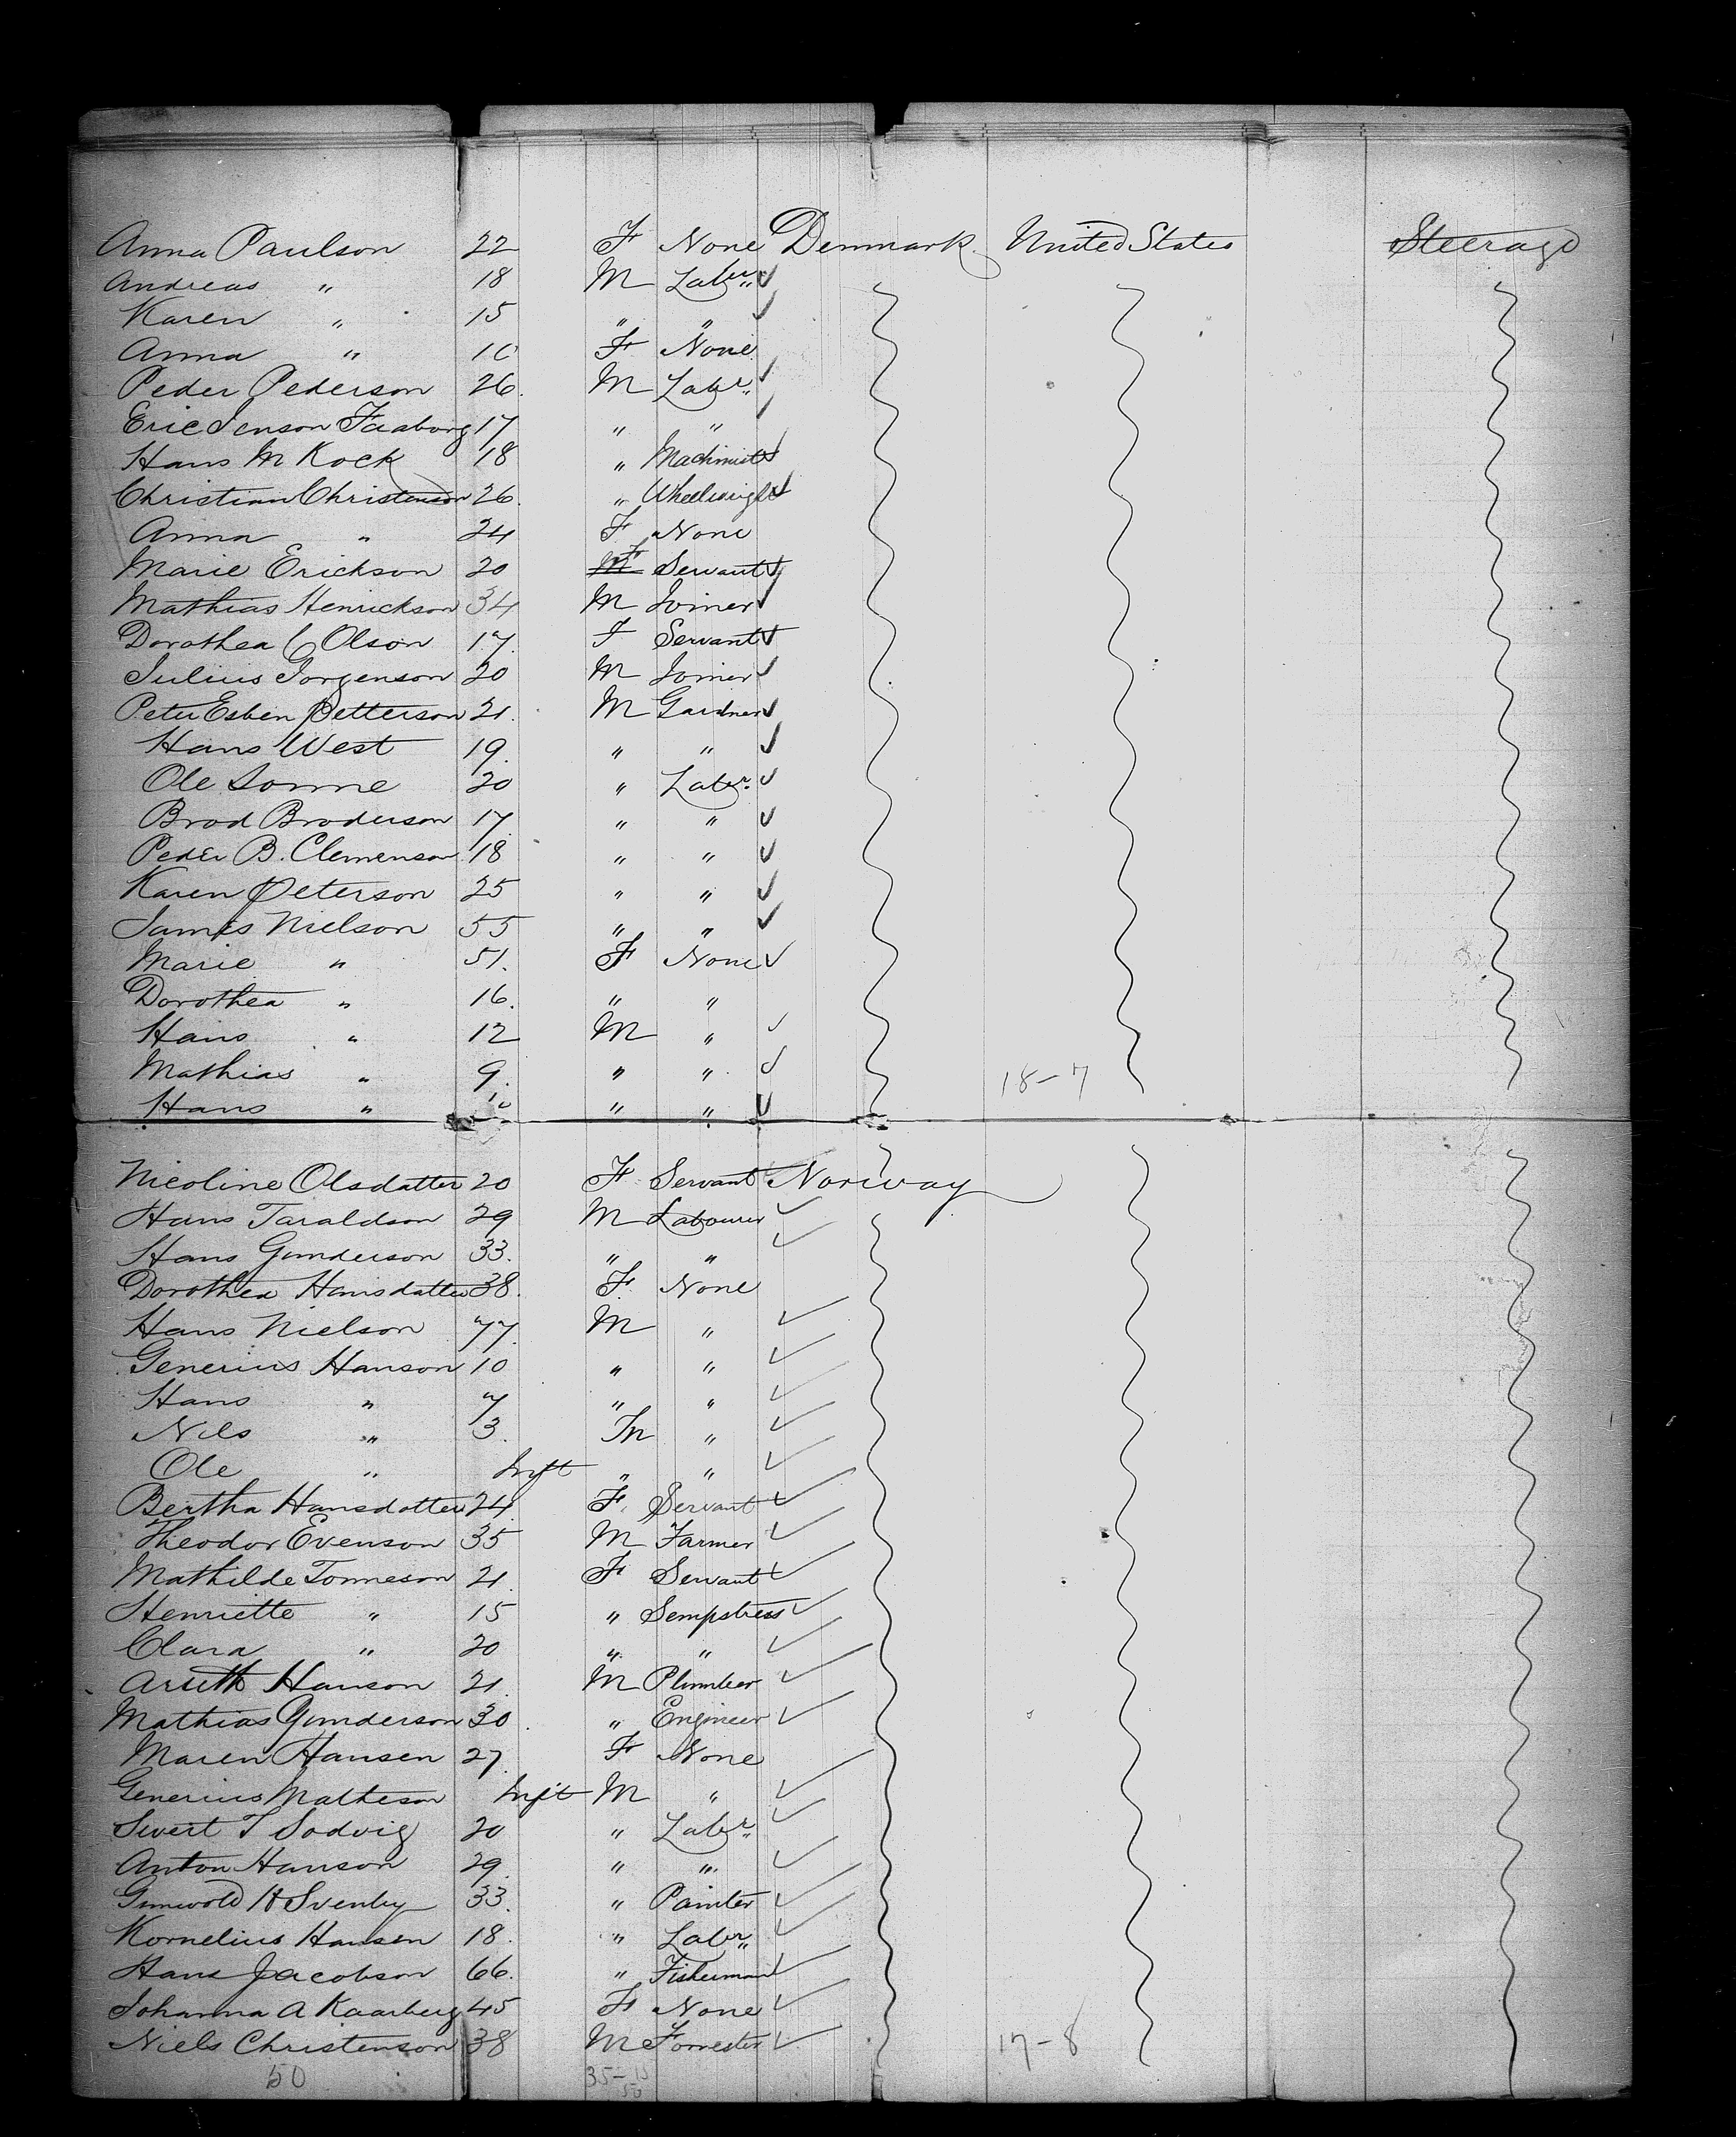 Anna Paulson 22 F None Denmark United States Steerage
Andreas " 18 M Labr
Karen " 15 " "
Anna " F None
Peder Pederson 26. M Labr
Eric Jenson Faaborg 17 " "
Hans M Kock 18 " Machinist
Christian Christenson 26. " Wheelwright
Anna " 24 F None
Marie Erickson 20 F Servant
Mathias Henrickson 34 M Joiner
Dorothea C Olson 17. F Servant
Julius Jorgenson 20 M Joiner
Peter Esben Petterson 21. M Gardner
Hans West 19. " "
Ole Sonne 20 " Labr.
Brod Broderson 17. " "
Peder B. Clemenson 18 " "
Karen Peterson 25 " "
James Nielson 55 " "
Marie " 51. F None
Dorothea " 16. " "
Hans " 12 M "
Mathias " 9. " " 18-7
Hans " " "
Nicoline Olsdatter 20 F Servant Norway
Hans Taraldson 29 M Labourer
Hans Gunderson 33. " "
Dorothea Hansdatter 38. F None
Hans Nielson 77. M "
Generius Hanson 10 " "
Hans " 7 " "
Nils " 3. M "
Ole " Inft " "
Bertha Hansdatter 24. F. Servant
Theodor Evenson 35 M Farmer
Mathilde Tonneson 21. F Servant
Henriette " 15 " Sempstress
Clara " 20 " "
Hanson 21. M Plumber
Mathias Gunderson 30. " Engineer
Maren Hansen 27. F None
Generius Matheson Inft M "
Sivert T Sodvig 20 " Labr
Anton Hanson 29. " "
H Svenby 33. " Painter
Kornelius Hansen 18. " Labr
Hans Jacobson 66. " Fisherman
Johanna A Kaarberg 45 F None
Niels Christenson 38 M Forrester 17-8
50 35-15
50